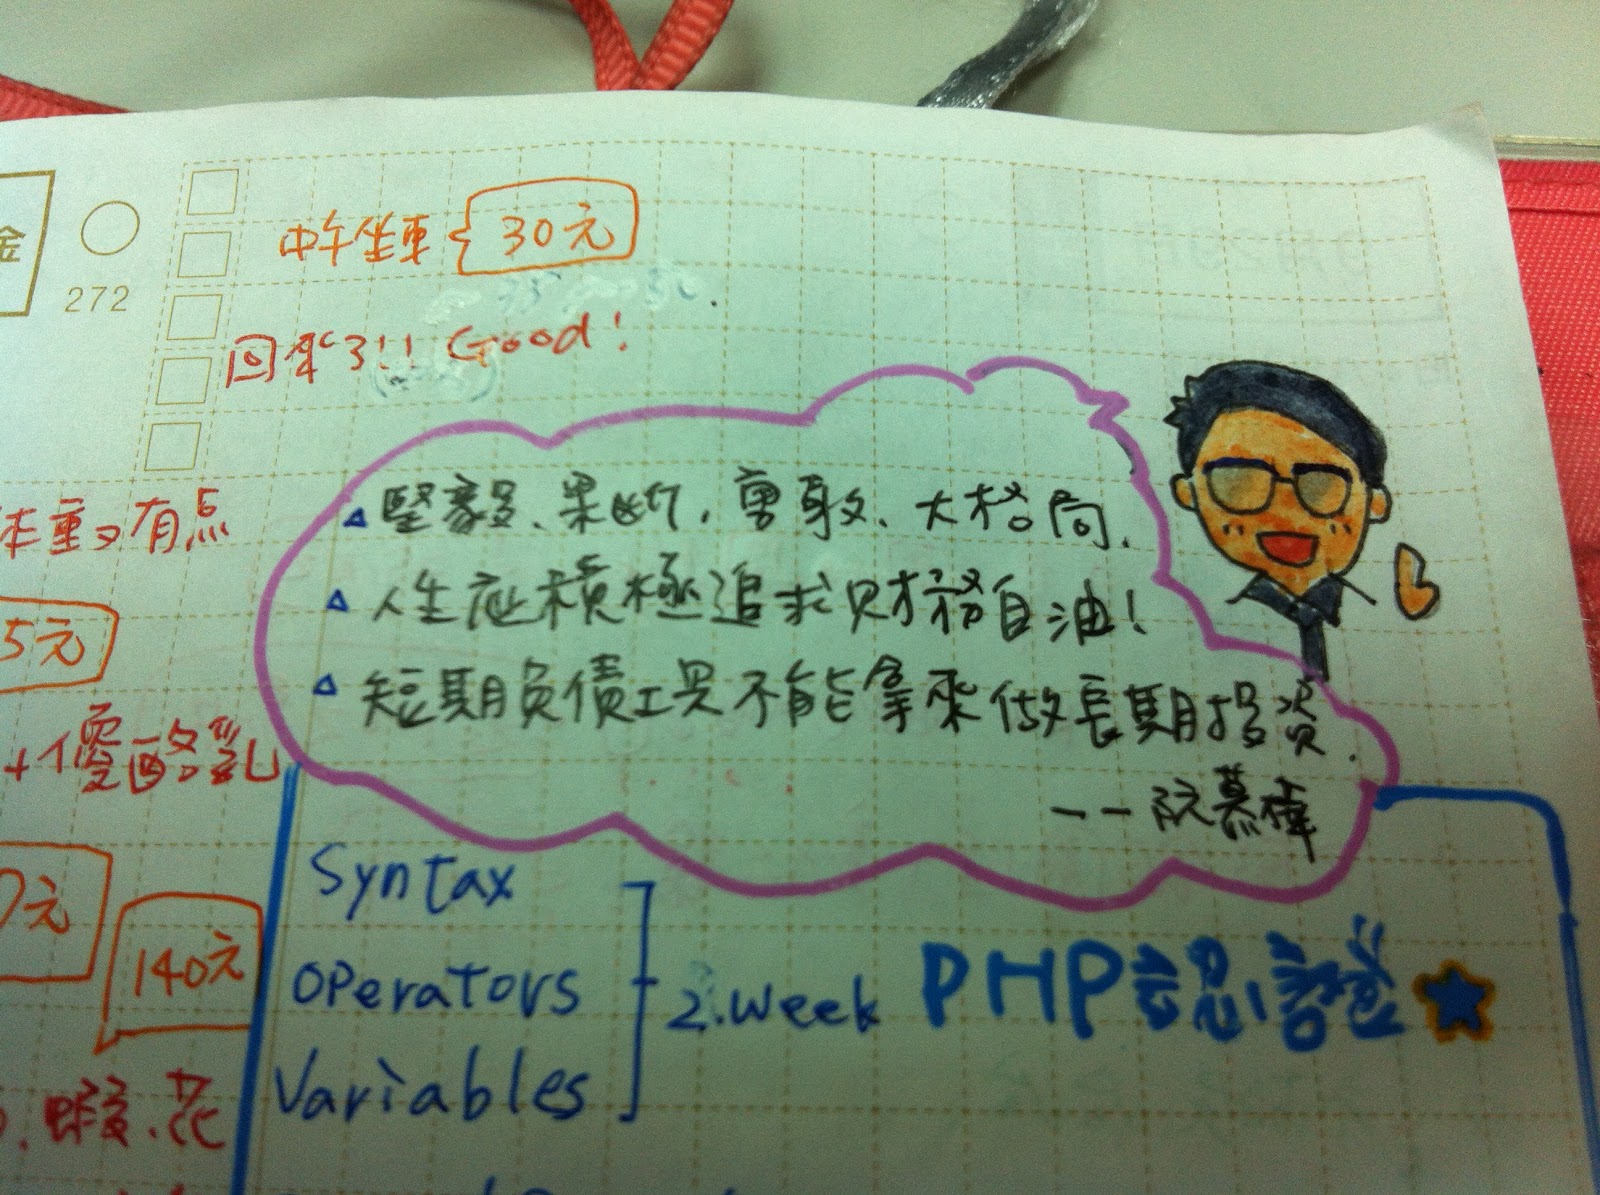 金
272
中午坐車 30元
回來了!! Good!
体重又有点
5元
+優酪乳
0元
140元
蝦、花
▵堅毅、果断,勇敢、大格局.
▵人生应積極追求财務自油!
▵短期负債工具不能拿來做長期投资.
——阮慕樺
Syntax
OPerators
Variables
2.week
PHP認證